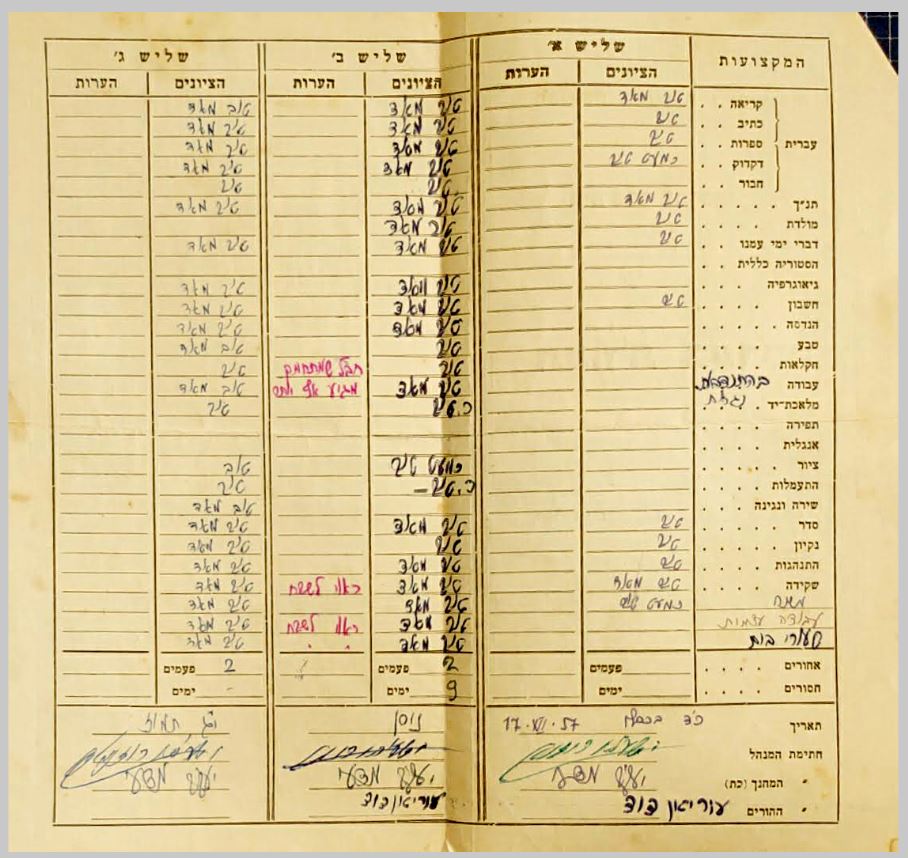 שליש א׳ שליש ב׳ שליש ג׳
המקצועות הציונים הערות הציונים הערות הציונים הערות
עברית
קריאה . . טוב מאד טוב מאד טוב מאד
כתיב . . טוב טוב מאד טוב מאד
ספרות . . טוב טוב מאד טוב מאד
דקדוק . . כמעט טוב טוב מאד טוב מאד
חבור . . טוב טוב
תנ״ך . . . . . טוב מאד טוב מאד טוב מאד
מולדת . . . . . טוב טוב מאד
דברי ימי עמנו . . טוב טוב מאד טוב מאד
הסטוריה כללית . .
גיאוגרפיה . . . . טוב מאד טוב מאד
חשבון . . . . . טוב טוב מאד טוב מאד
הנדסה . . . . . טוב מאד טוב מאד
טבע . . . . . טוב טוב מאד
חקלאות . . . . טוב חבל שמתחמק טוב
עבודה בהתנדבות טוב מאד טוב מאד
מלאכת־יד . . . . כ. טוב טוב
תפירה . . . . .
אנגלית . . . . .
ציור . . . . . כמעט טוב טוב
התעמלות . . . . כ. טוב – טוב
שירה ונגינה . . . טוב מאד
סדר . . . . . טוב טוב מאד טוב מאד
נקיון . . . . . טוב טוב טוב מאד
התנהגות . . . . טוב טוב מאד טוב מאד
שקידה . . . . . טוב מאד טוב מאד ראוי לשבח טוב מאד
משנה כמעט טוב טוב מאד טוב מאד
עבודה עצמית טוב מאד ראוי לשבח טוב מאד
שעורי בית טוב מאד טוב מאד
אחורים . . . . פעמים 2 פעמים 2 פעמים
חסורים . . . . ימים 9 ימים ימים
תאריך כ״ד בכסלו 17.XII.57 ניסן תמוז
חתימת המנהל
״ המחנך (כת)
״ ההורים עוריאן דוד עוריאן דוד